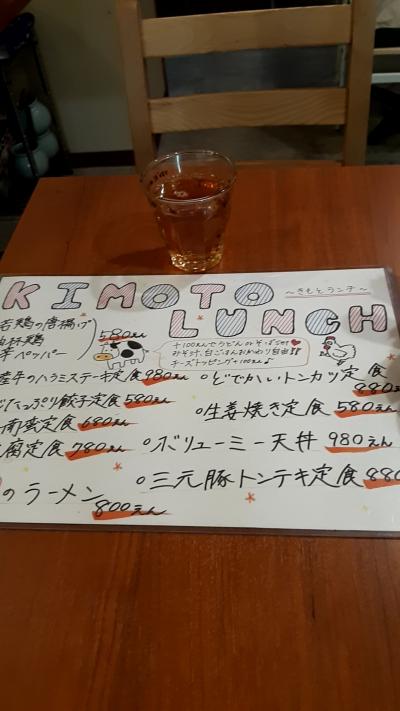 KIMOTO
~きもとランチ~
LUNCH
若鶏の唐揚げ
ペッパー
580えん
+100えんでうどんorそばSet♥
みそ汁、白ごはんおかわり自由!!
チーズトッピング+100えん♪
牛のハラミステーキ定食980えん
たっぷり餃子定食580えん
南蛮定食680えん
腐定食780えん
のラーメン
800えん
○どでかいトンカツ定食
880えん
○生姜焼き定食580えん
○ボリューミー天丼980えん
○三元豚トンテキ定食880